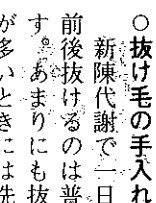 ○抜け毛の手入れ
新陳代謝で一日
前後抜けるのは普
す。あまりにも抜
が多いときには先